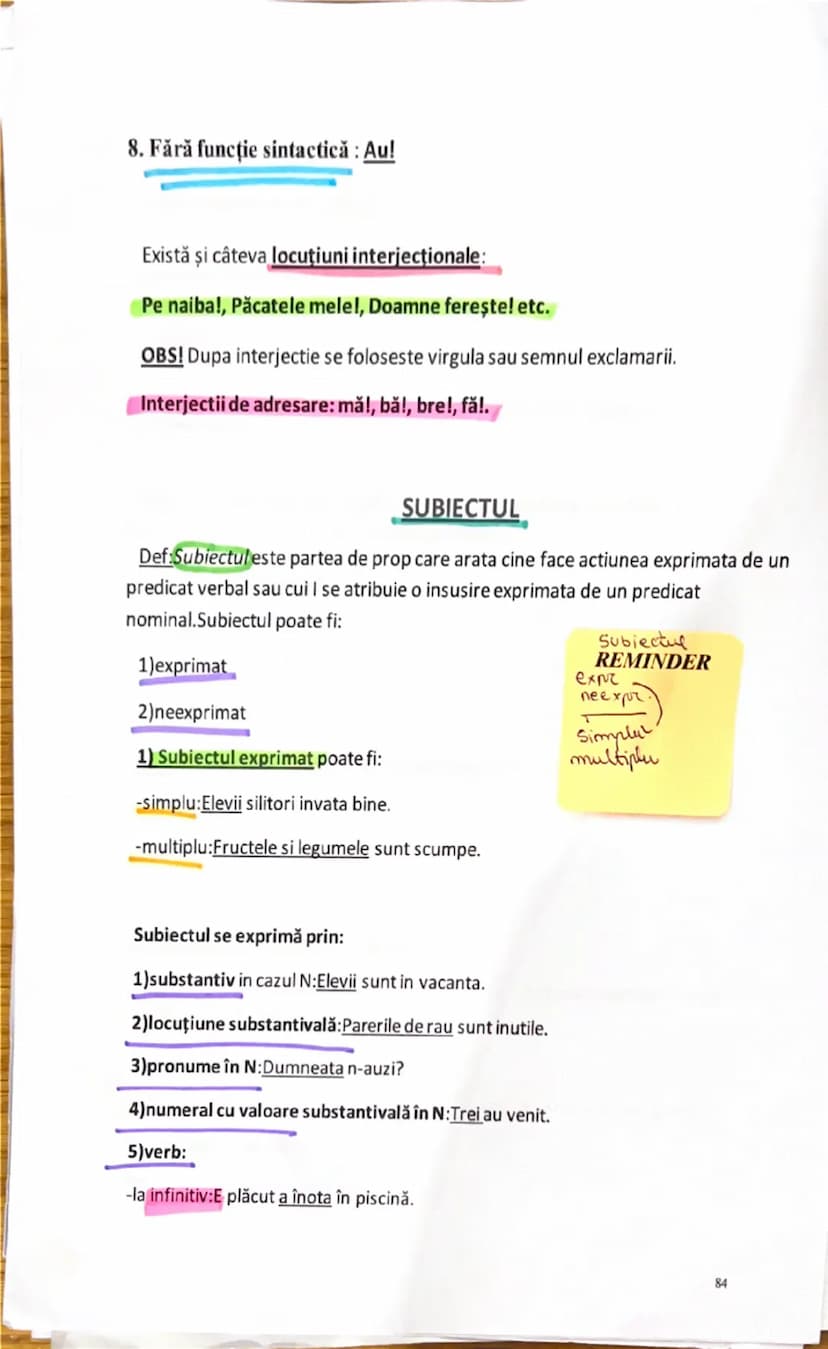 8. Fără funcție sintactică : Au!
Există și câteva locuțiuni interjecționale:
Pe naiba!, Păcatele mele!, Doamne ferește! etc.
OBS! Dupa interjectie se foloseste virgula sau semnul exclamarii.
Interjectii de adresare: mă!, bă!, bre!, fă!.
SUBIECTUL
Def:Subiectul este partea de prop care arata cine face actiunea exprimata de un
predicat verbal sau cui I se atribuie o insusire exprimata de un predicat
nominal.Subiectul poate fi:
1)exprimat
2)neexprimat
1) Subiectul exprimat poate fi:
-simplu:Elevii silitori invata bine.
-multiplu:Fructele si legumele sunt scumpe.
Subiectul
REMINDER
expr
neexpr.
simplu
multiplu
Subiectul se exprimă prin:
1)substantiv in cazul N:Elevii sunt in vacanta.
2)locuțiune substantivală:Parerile de rau sunt inutile.
3)pronume în N:Dumneata n-auzi?
4)numeral cu valoare substantivală în N:Trei au venit.
5)verb:
-la infinitiv:E plăcut a înota în piscină.
84